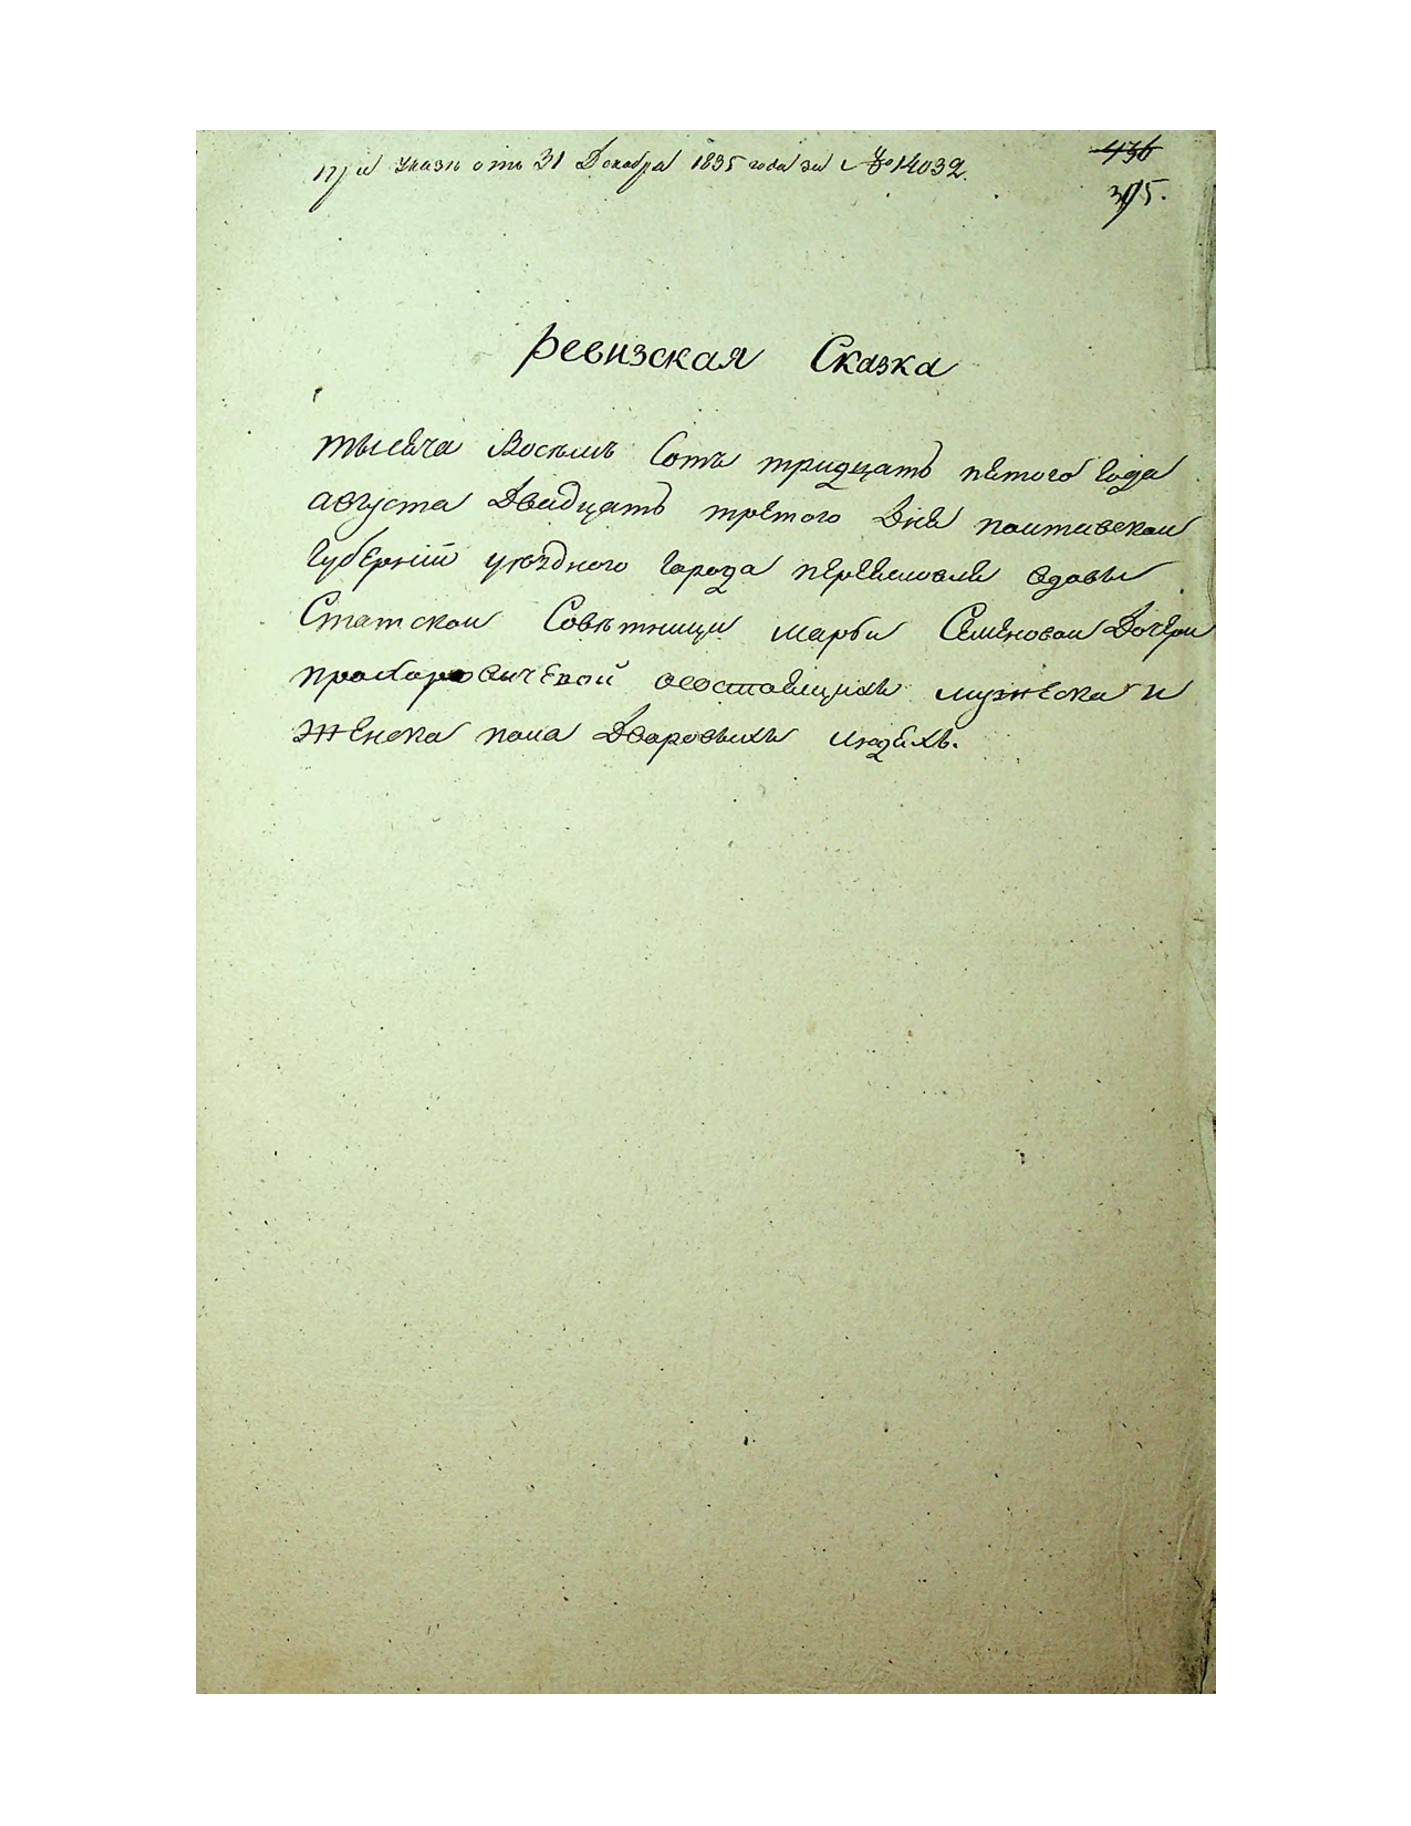 при указе отъ 31 Декабря 1835 года за №14032.
436
395.
Ревизская Сказка
тысяча Восемъ Сотъ тридцать пятого года
августа Двадцать третого Дня полтавской
Губерніи уѣздного города переяславля вдовы
Статской Совѣтници марѳи Семеновой Дочери
осостоящихъ мужеска и
женска пола Дворовыхъ людяхъ.